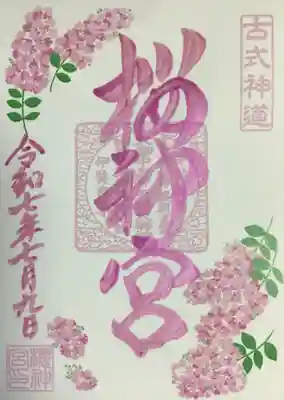 古式神道
桜神宮
令和七年七月九日